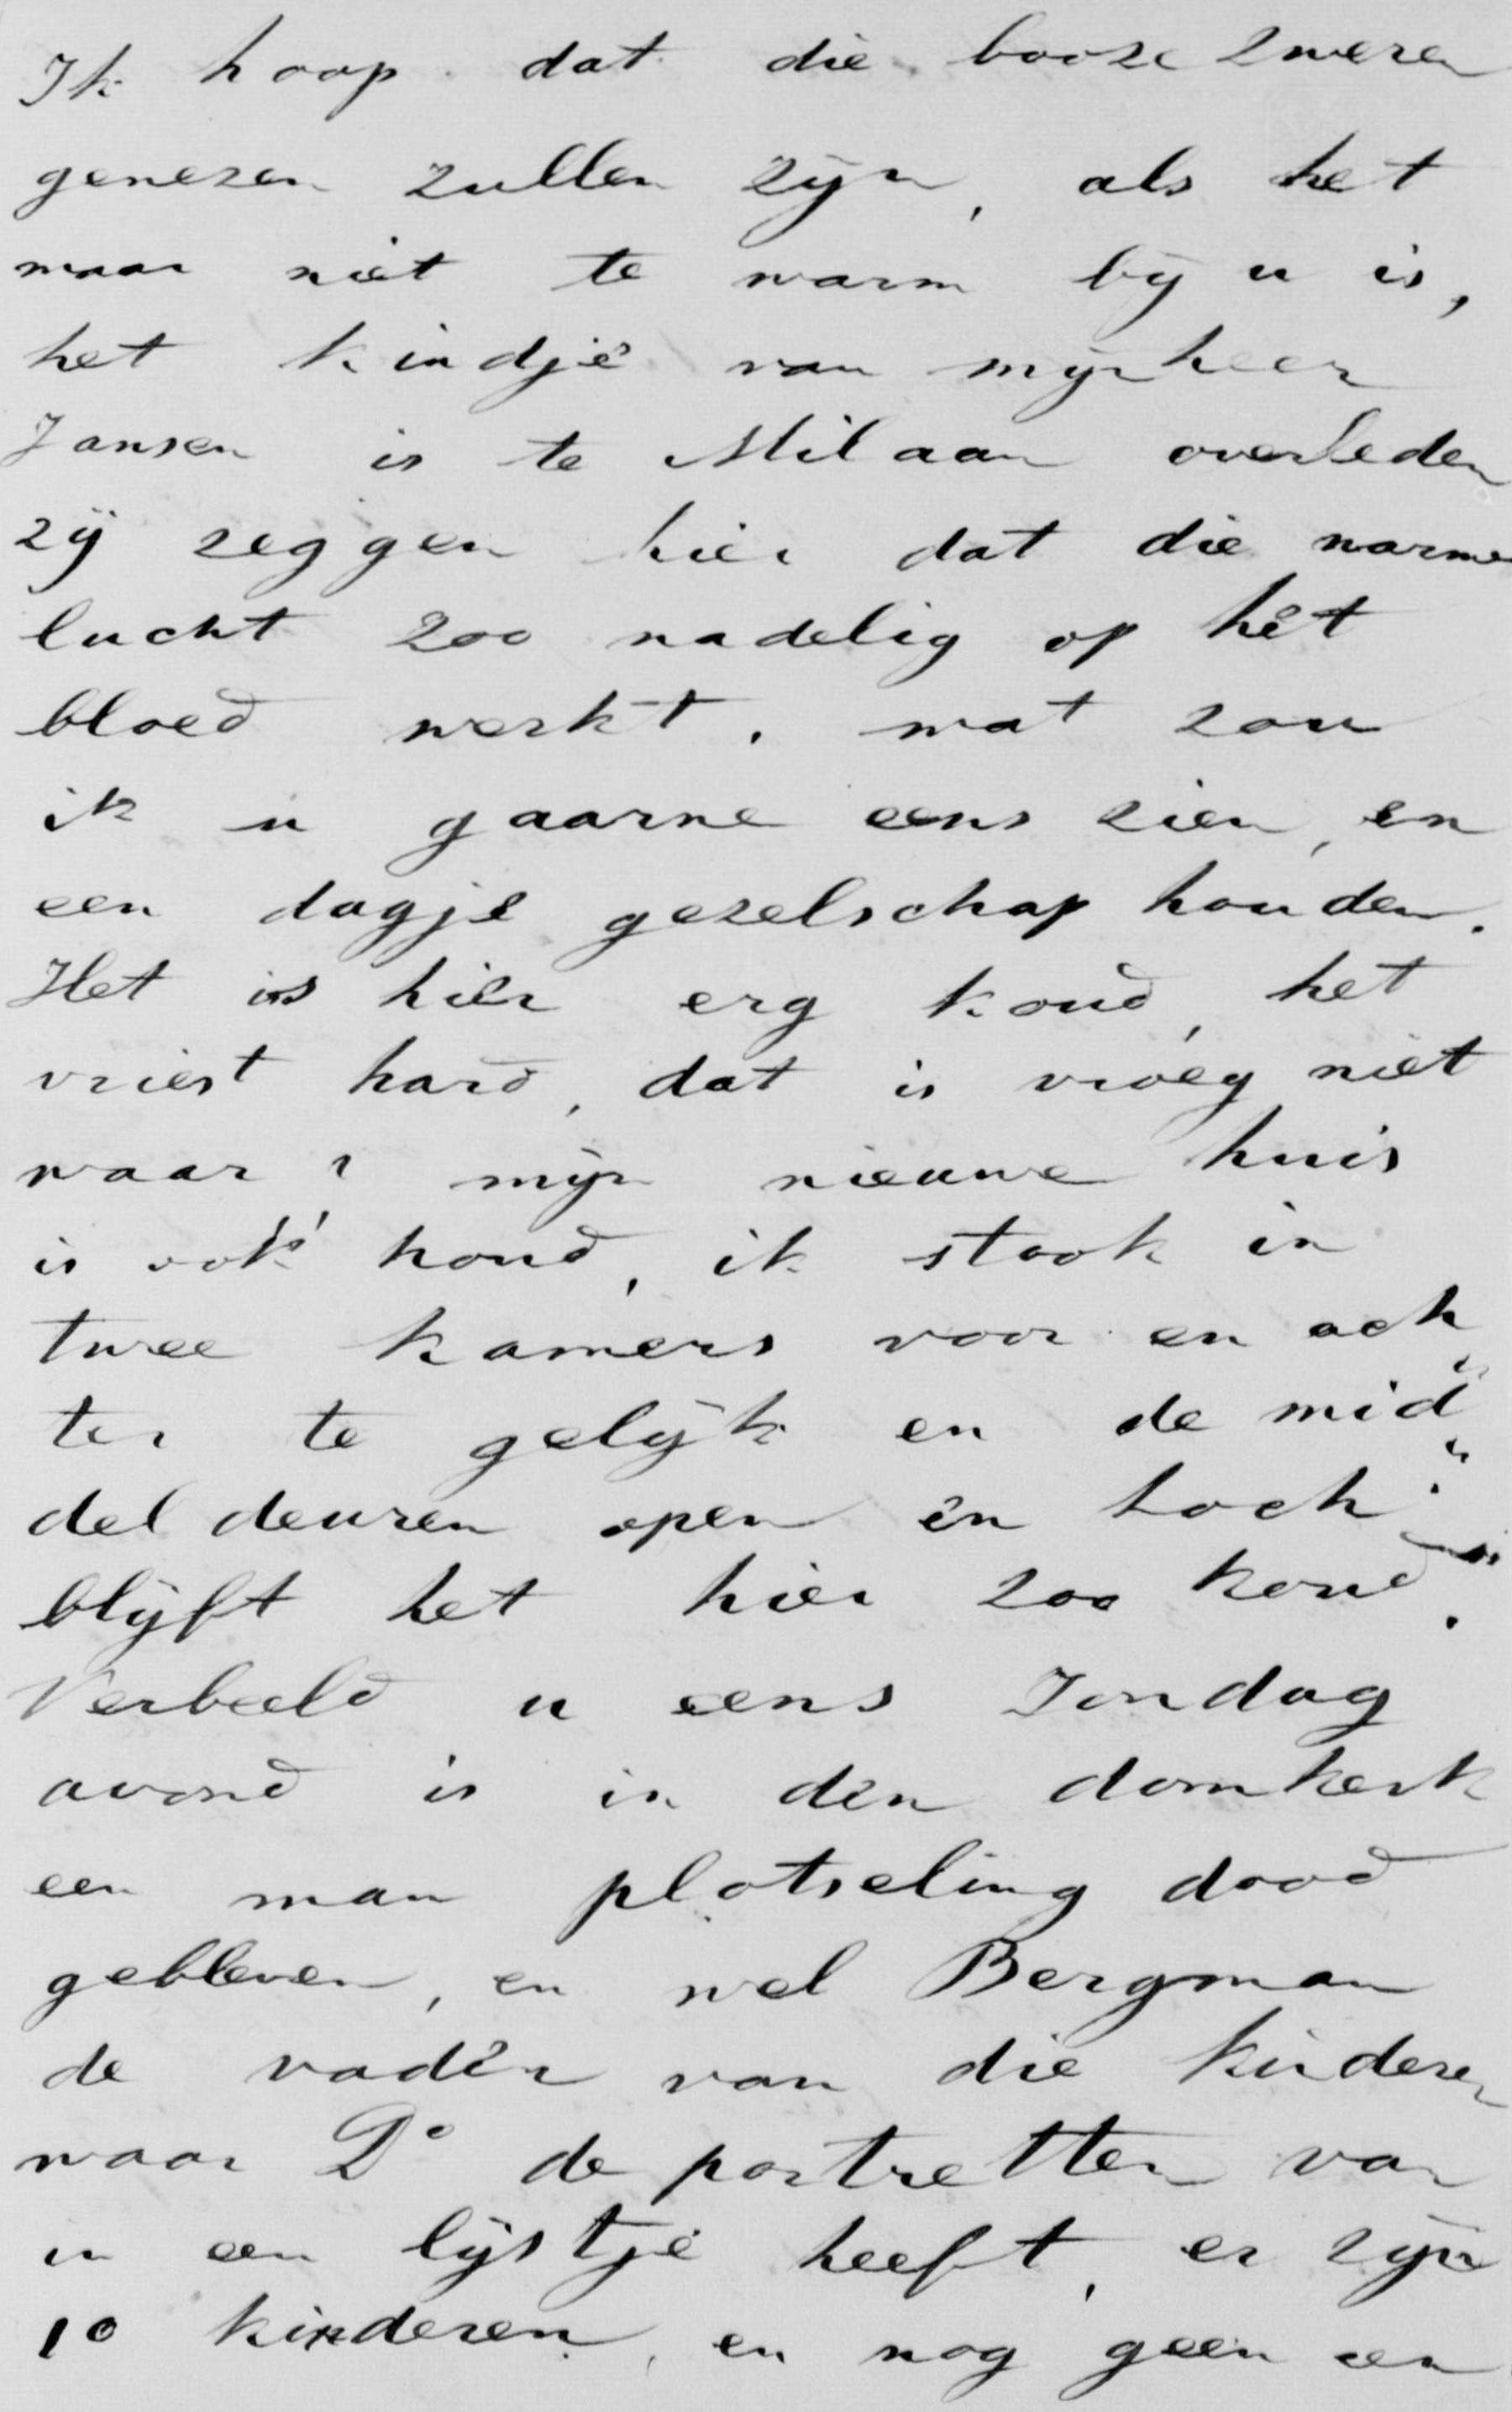 Ik hoop dat die booze zweren
genezen zullen zijn, als het
maar niet te warm bij u is,
het kindje van mijnheer
Jansen is te Milaan overleden
zij zeggen hier dat die warme
lucht zoo nadelig op het
bloed werkt. wat zou
ik u gaarne eens zien, en
een dagje gezelschap houden.
Het is hier erg koud, het
vriest hard, dat is vroeg niet
waar? mijn nieuwe huis
is ook koud, ik stook in
twee kamers voor en ach„
ter te gelijk en de mid„
deldeuren open en toch
blijft het hier zoo koud.
Verbeeld u eens Zondag
avond is in den domkerk
een man plotseling dood
gebleven, en wel Bergman
de vader van die kinderen
waar Do de portretten van
in een lijstje heeft, er zijn
10 kinderen, en nog geen een